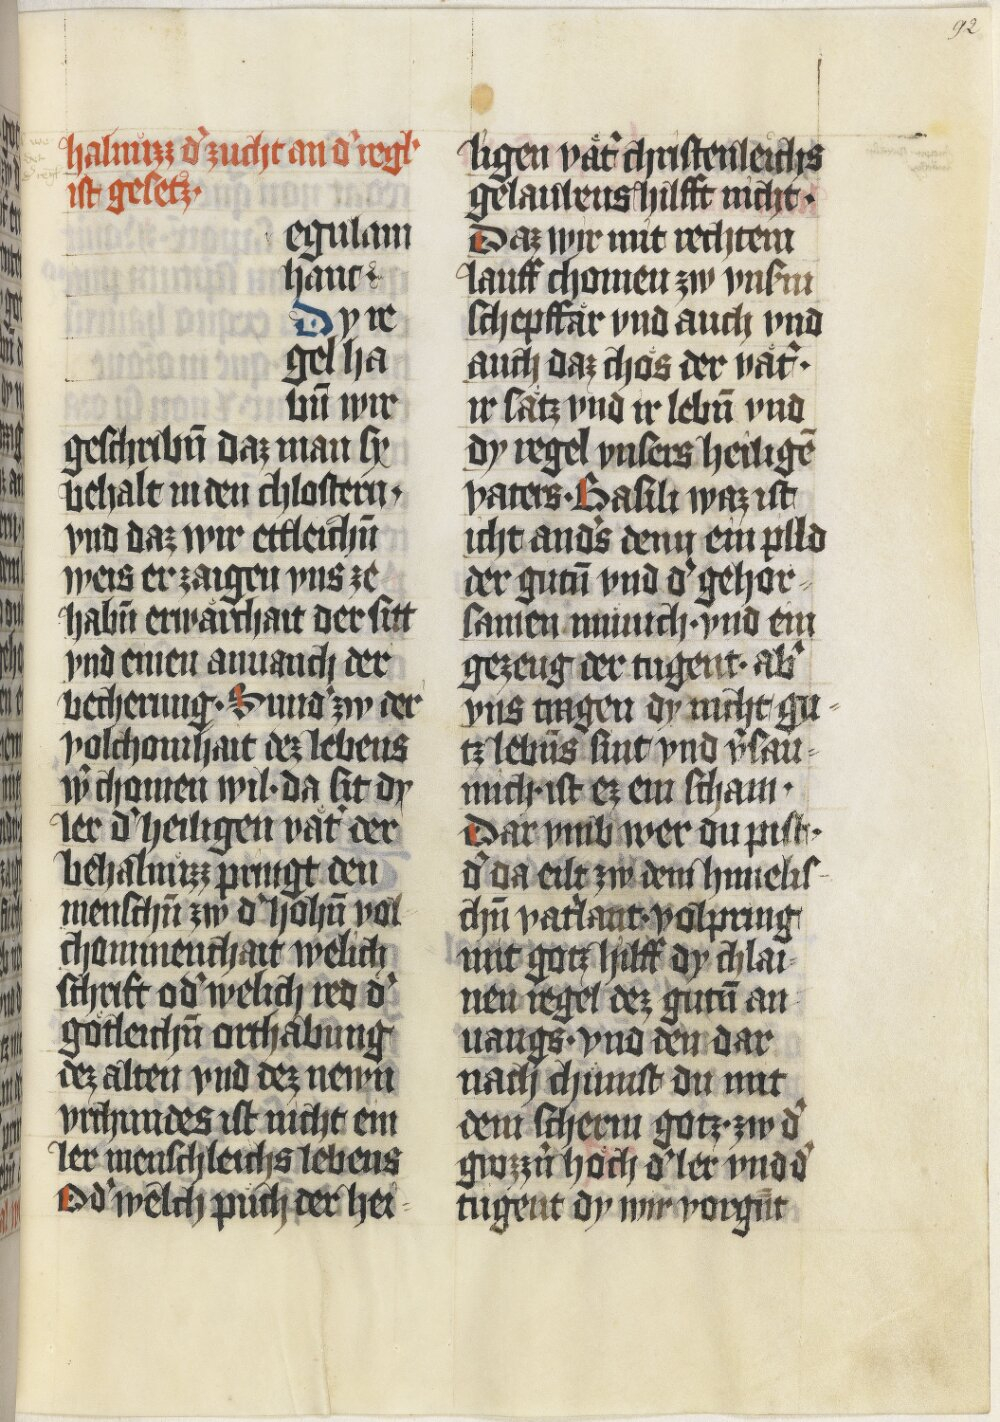 92
halnuͤzz d᷎ zucht an d᷎ regl·
ist gesetz·
egulam
hanc ⁊
Dy re
gel ha
bn̄ wir
geschribn̄ daz man sy
behalt in den chlostern·
vnd daz wir ettleichn̄
weis erzaigen vns ze
habn̄ erwaͤrchait der sitt
vnd einen anuanch der
becherung· Sund᷎ zw der
volchomhait dez lebens
w᷎ chomen wil· da sit dy
ler d᷎ heiligen vaͤt᷎ der
behalnuͤzz pringt den
menschn̄ zw d᷎ hoͤhn̄ vol
chommenchait welich
schrift od᷎ welich red d᷎
goͤtleichn̄ orthabung
dez alten vnd dez newn̄
vrchundes ist nicht ein
ler menschleichs lebens
Od᷎ welch puͤch der hei-
ligen vaͤt᷎ christenleichs
gelaubens hilfft nicht·
Daz wyr mit rechtem
lauff chomen zw vns᷎m
schepffaͤr vnd auch vnd
auch daz choͤs der vaͤt᷎·
ir saͤtz vnd ir lebn̄ vnd
dy regel vnsers heiligē
vaters· Basili waz ist
icht and᷎s denn ein pild
der gutn̄ vnd d᷎ gehor-
samen muͤnich· vnd ein
gezeug der tugent· ab᷎
vns tragen dy nicht gu-
tz lebn̄s sint vnd v᷎sau-
mich· ist ez ein scham·
Dar vmb wer du pist·
d᷎ da eilt zw dem himelis-
chn̄ vat᷎lant· volpring
mit gotz hilff dy chlai-
nen regel dez gutn̄ an
uangs· vnd den dar
nach chumst du mit
dem scherm gotz· zw d᷎
grozzn̄ hoͤch d᷎ ler vnd d᷎
tugent dy wir vorgn̄t